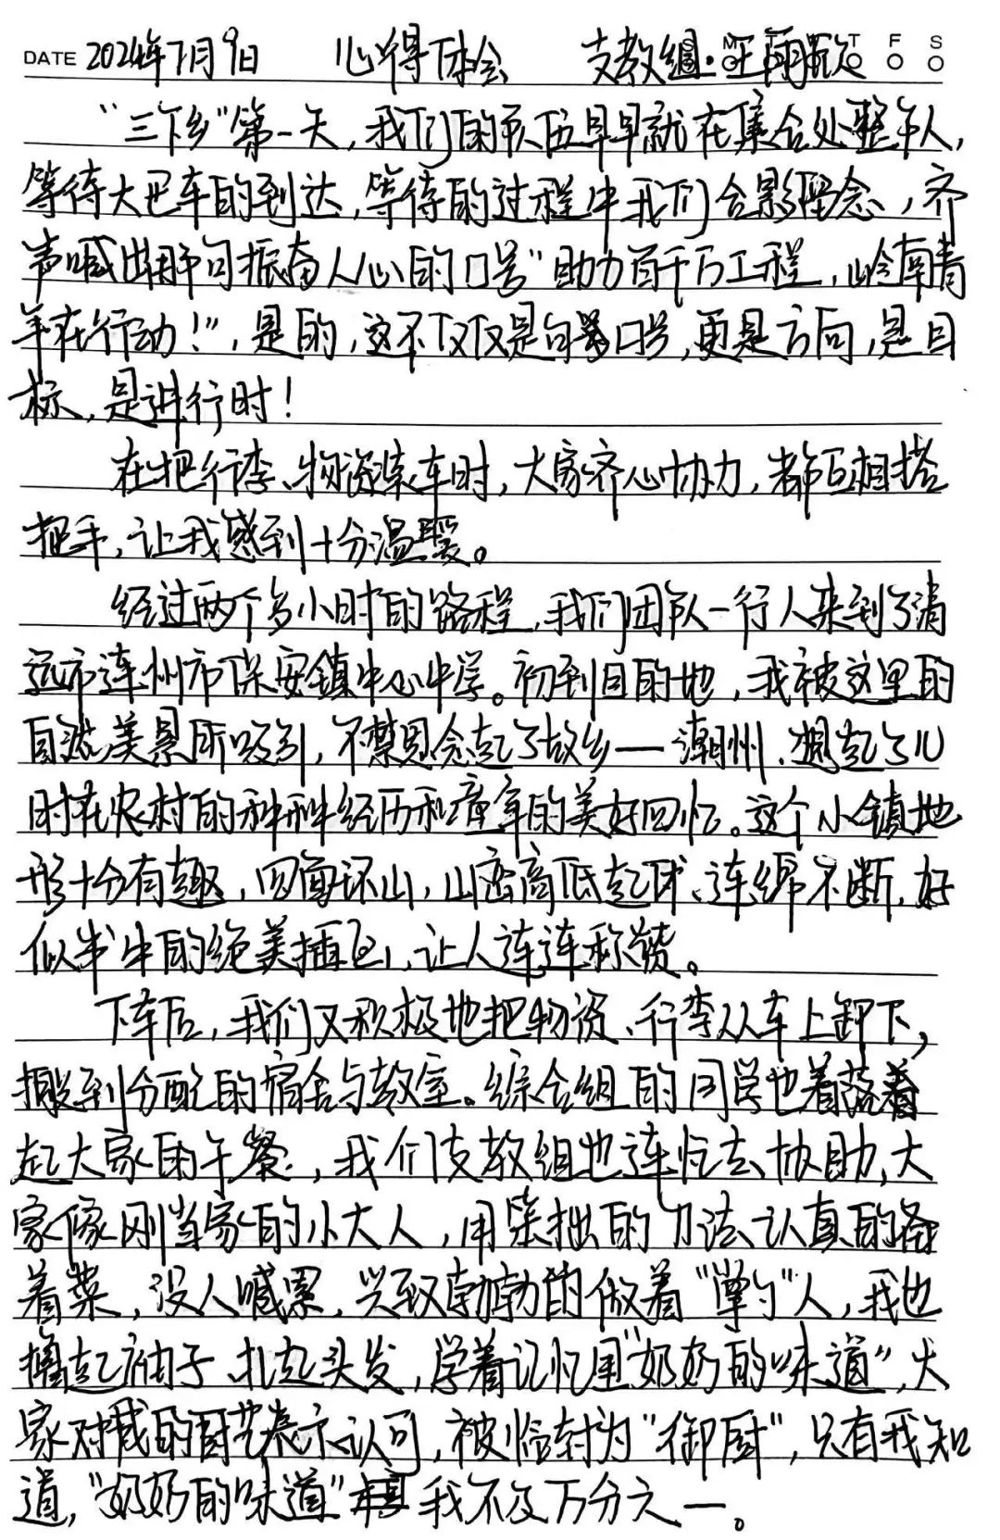 DATE 2024年7月9日 心得体会 支教组·汪雨欣 S M T W T F S
"三下乡"第一天，我们的队伍早早就在集合处整车人，
等待大巴车的到达，等待的过程中我们合影留念，齐
声喊出那句振奋人心的口号"助力百千万工程，岭南青
年在行动！"，是的，这不仅仅是句口号，更是方向，是目
标，是进行时！
在把行李、物资装车时，大家齐心协力，都互相搭
把手，让我感到十分温暖。
经过两个多小时的路程，我们团队一行人来到了清
远市连州市保安镇中心中学。初到目的地，我被这里的
自然美景所吸引，不禁思念起了故乡——潮州，想起了儿
时在农村的种种经历和童年的美好回忆。这个小镇地
形十分有趣，四面环山，山峦高低起伏、连绵不断，好
似书中的绝美插画，让人连连称赞。
下车后，我们又积极地把物资、行李从车上卸下，
搬到分配的宿舍与教室。综合组的同学也着落着
起大家的午餐，我们支教组也连忙去协助，大
家像刚当家的小大人，用笨拙的刀法认真的备
着菜，没人喊累，兴致勃勃的做着"掌勺"人，我也
撸起袖子、扎起头发，学着记忆里"奶奶的味道"，大
家对我的厨艺表示认可，被临封为"御厨"，只有我知
道，"奶奶的味道"我不及万分之一。